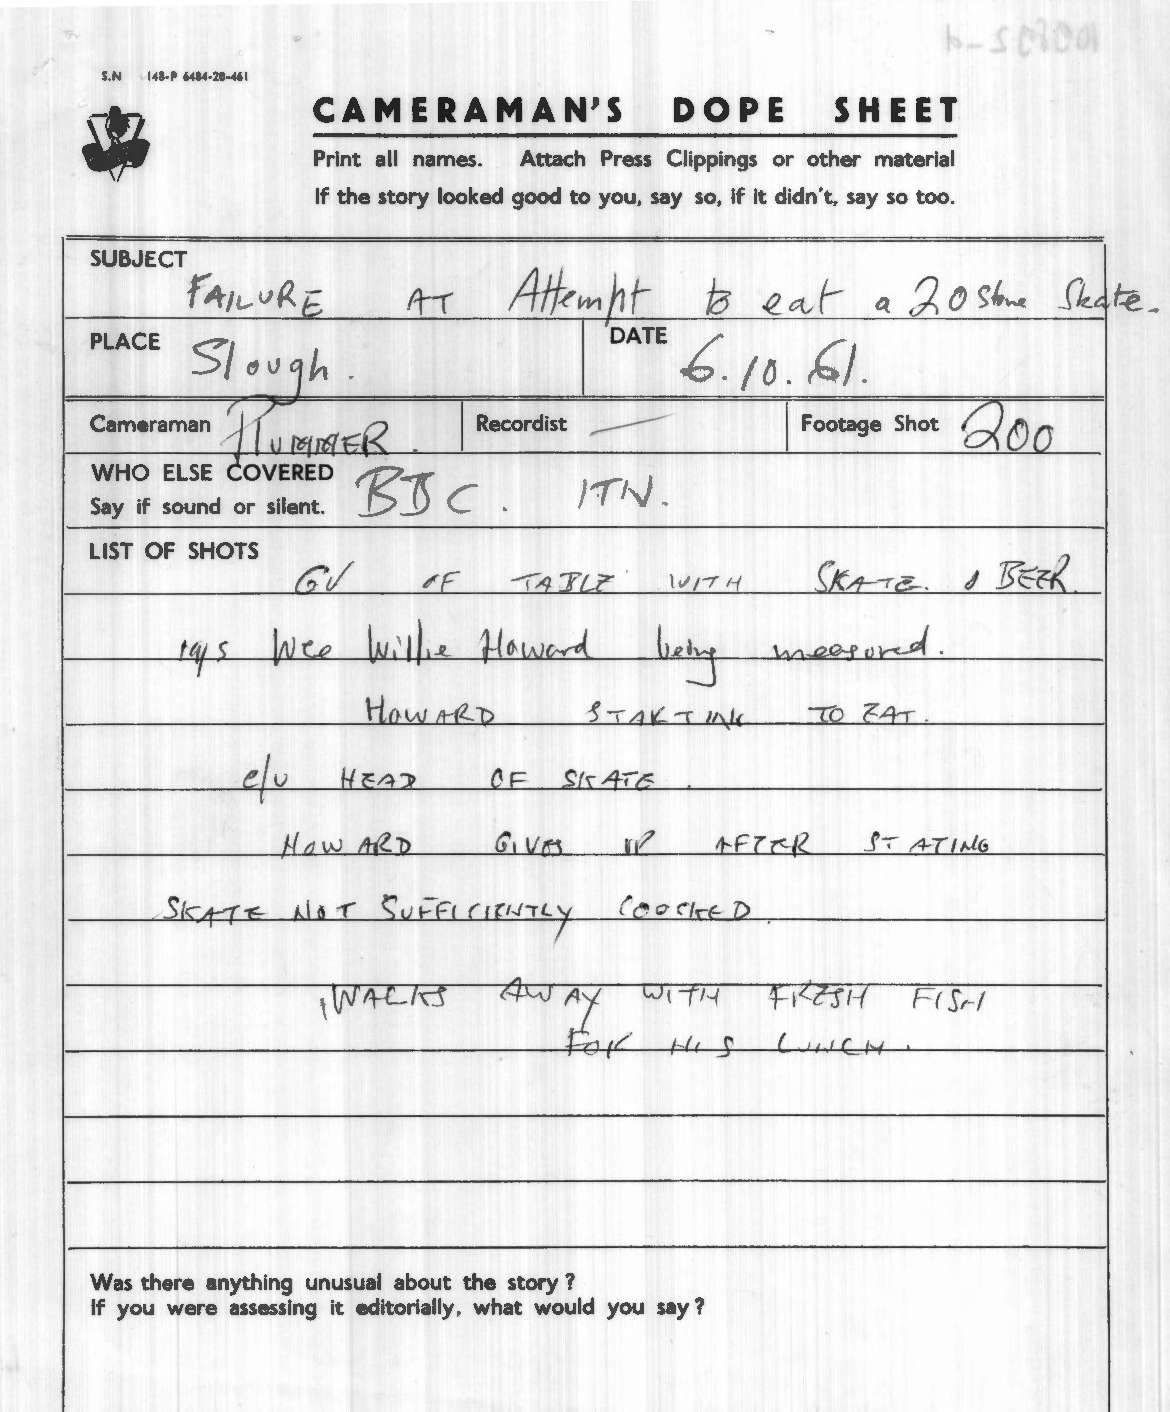 S.N 148-P 6484-28-461
CAMERAMAN'S DOPE SHEET
Print all names. Attach Press Clippings or other material
If the story looked good to you, say so, if it didn't, say so too.
SUBJECT
FAILURE AT Attempt to eat a 20 stone Skate.
PLACE Slough. DATE 6.10.61.
Cameraman PLUMMER. Recordist — Footage Shot 200
WHO ELSE COVERED
Say if sound or silent. BBC. ITN.
LIST OF SHOTS
GV OF TABLE WITH SKATE. & BEER.
Wee Willie Howard being measured.
HOWARD STARTING TO EAT.
c/u HEAD OF SKATE.
HOWARD GIVES UP AFTER STATING
SKATE NOT SUFFICIENTLY COOCKED.
WALKS AWAY WITH FRESH FISH
FOR HIS LUNCH.
Was there anything unusual about the story?
If you were assessing it editorially, what would you say?